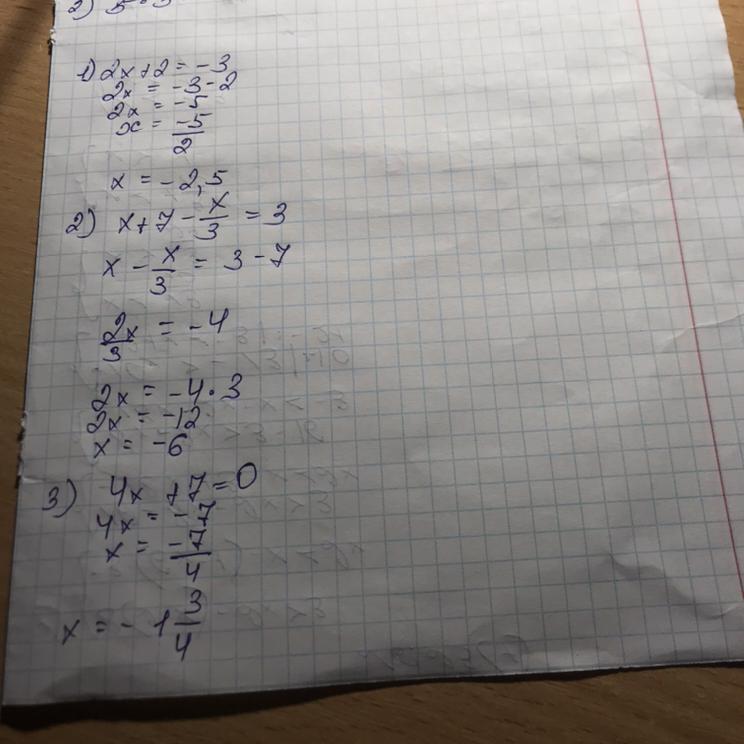 1) 2x + 2 = -3
2x = -3 - 2
2x = -5
x = -5/2
x = -2,5
2) x + 7 - x/3 = 3
x - x/3 = 3 - 7
2/3 x = -4
2x = -4 · 3
2x = -12
x = -6
3) 4x + 7 = 0
4x = -7
x = -7/4
x = -1 3/4